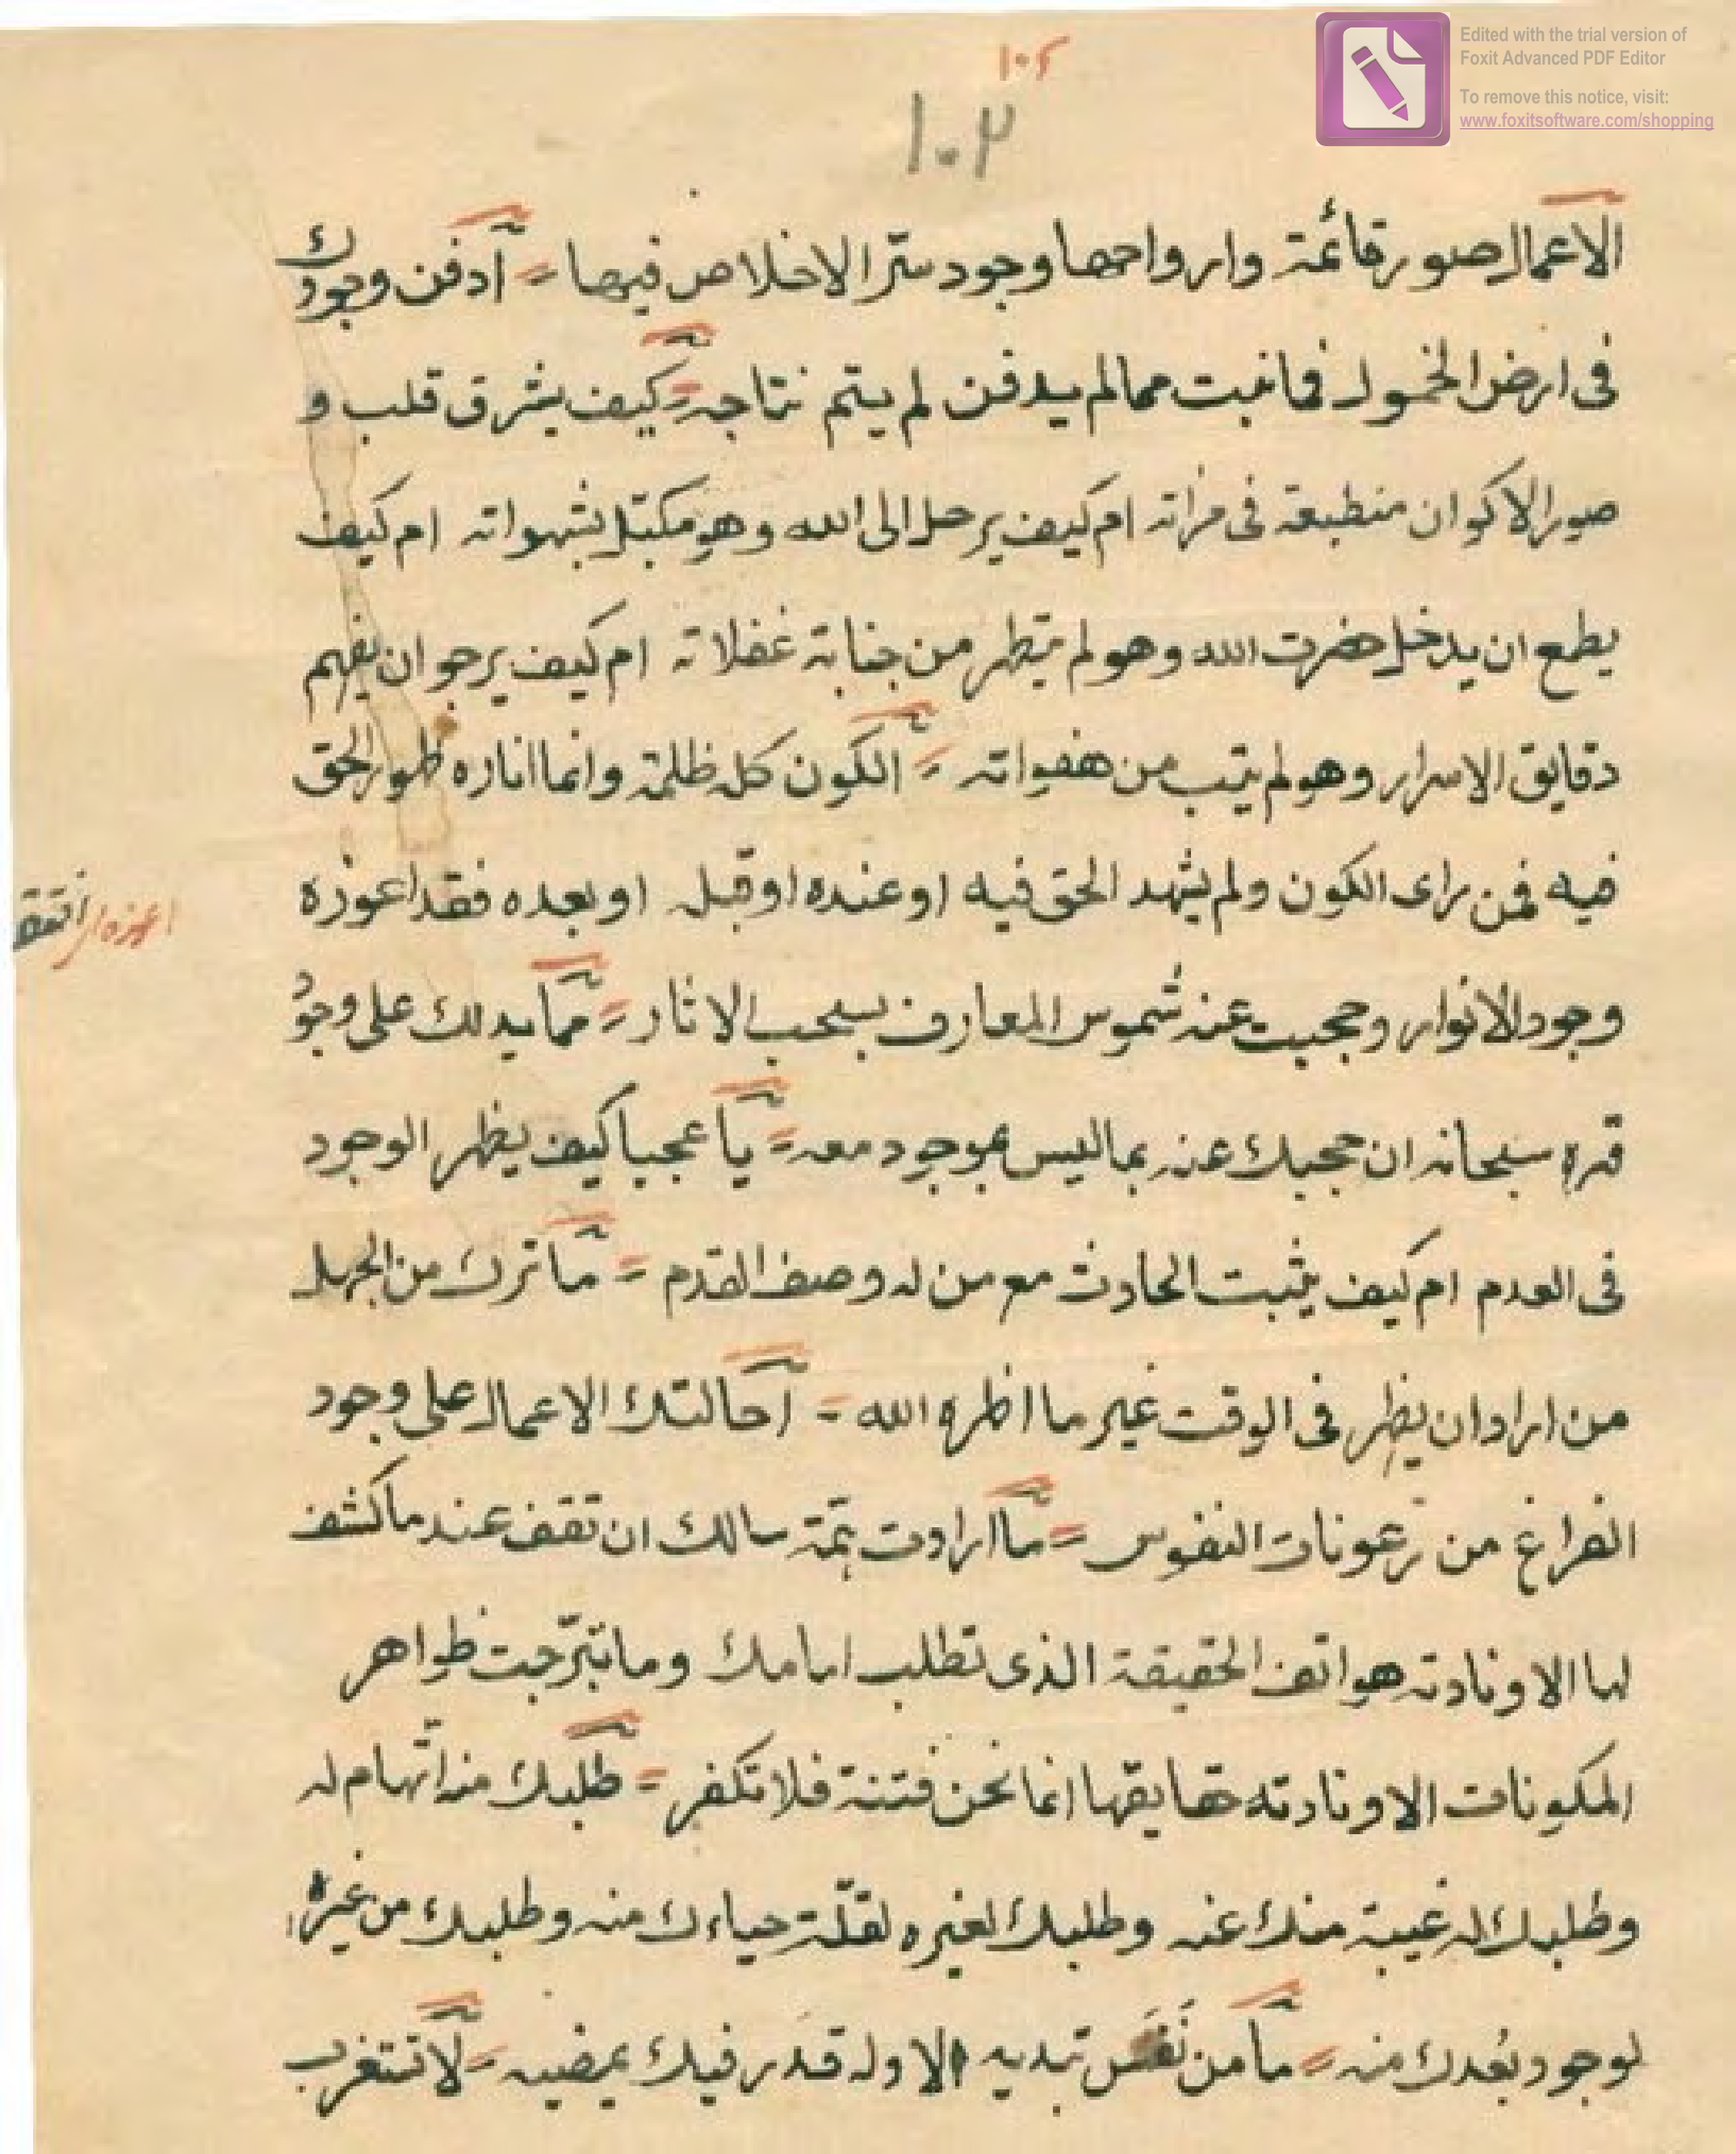 Edited with the trial version of
Foxit Advanced PDF Editor
To remove this notice, visit:
www.foxitsoftware.com/shopping
١٠٢
الاعمال صور قائمة وارواحها وجود سرّ الاخلاص فيها = ادفن وجودك
فى ارض الخمول فما نبت مما لم يدفن لم يتم نتاجه = كيف يشرق قلب و
صور الاكوان منطبعة فى مراته ام كيف يرحل الى الله وهو مكبّل بشهواته ام كيف
يطمع ان يدخل حضرت الله وهو لم يتطهر من جنابة غفلاته ام كيف يرجو ان يفهم
دقايق الاسرار وهو لم يتب من هفواته = الكون كله ظلمة وانما اناره ظهور الحق
فيه فمن راى الكون ولم يشهد الحق فيه او عنده او قبله او بعده فقد اعوزه
وجود الانوار وحجبت عنه شموس المعارف بسحب الاثار = مما يدلك على وجود
قهره سبحانه ان حجبك عنه بما ليس بموجود معه = يا عجبا كيف يظهر الوجود
فى العدم ام كيف يثبت الحادث مع من له وصف القدم = ما ترك من الجهل
من اراد ان يظهر فى الوقت غير ما اظهره الله = احالتك الاعمال على وجود
الفراغ من رعونات النفوس = ما ارادت همّة سالك ان تقف عند ما كشف
لها الا ونادته هواتف الحقيقة الذى تطلب امامك وما تبرّجت ظواهر
المكونات الا ونادته حقايقها انما نحن فتنة فلا تكفر = طلبك منه اتّهام له
وطلبك له غيبة منك عنه وطلبك لغيره لقلّة حياءك منه وطلبك من غيره
لوجود بُعدك منه = ما من نَفَس تبديه الا وله قدر فيك يمضيه = لا تستغرب